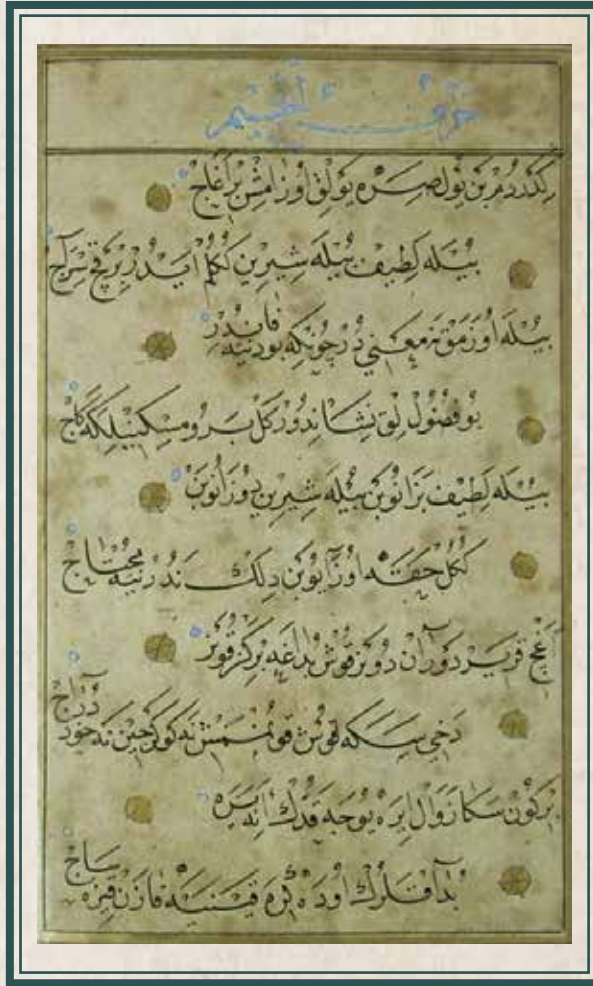 حرف الجيم
گدردم بن يول صره يولق اوزامش بر اغاج
بيله لطيف بيله شيرين ككلم ايدر بر قچ سرآچ
بيله اوزمق نه معنى در چونكه بو دنيه فانيدر
بو فضول لق نشاندور كل برو مسكينلكه كاچ
بيله لطيف بزانوبن بيله شيرين دوزانوبن
ككل حقه اوزايوبن دلك ندر نيه محتاج
اغج قرير دوران دونر قوش بداغه بر كز قونر
دخي سكه قوش قونممش نه كوكرجين نه خود دراج
بر كون سكا زوال ايره يوجه قدك انه يره
بداقلرك اوده كره قينيه قازن قزه ساج